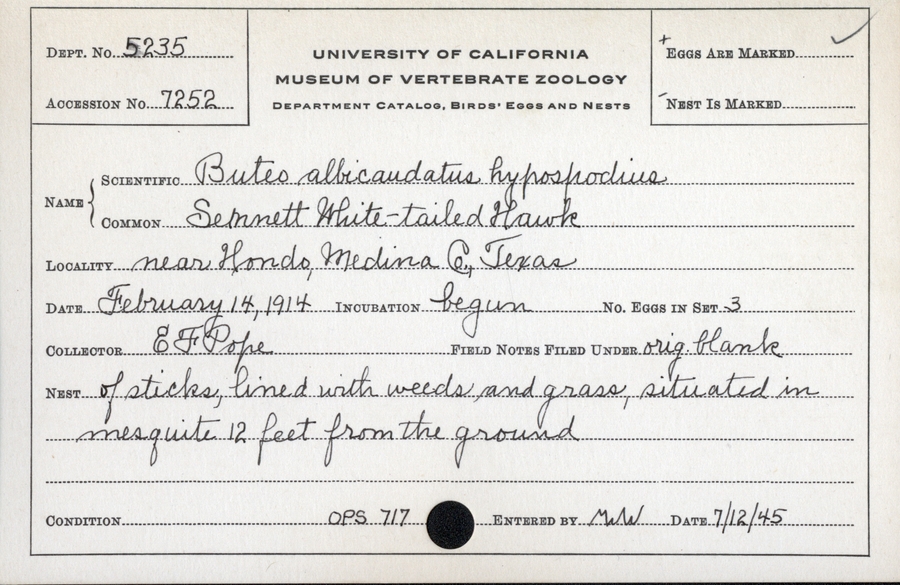 DEPT. No. 5235
ACCESSION No. 7252
UNIVERSITY OF CALIFORNIA
MUSEUM OF VERTEBRATE ZOOLOGY
DEPARTMENT CATALOG, BIRDS' EGGS AND NESTS
+ EGGS ARE MARKED ✓
- NEST IS MARKED
NAME { SCIENTIFIC Buteo albicaudatus hypospodius
COMMON Sennett White-tailed Hawk
LOCALITY near Hondo, Medina Co., Texas
DATE February 14, 1914 INCUBATION begun No. EGGS IN SET 3
COLLECTOR E F Pope FIELD NOTES FILED UNDER orig. blank
NEST of sticks, lined with weeds and grass, situated in
mesquite 12 feet from the ground
CONDITION OPS 717 ENTERED BY MWW DATE 7/12/45